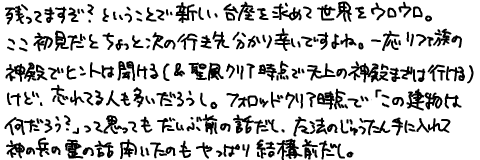 残ってますぞ？ということで新しい台座を求めて世界をウロウロ。
ここ初見だとちょっと次の行き先分かり辛いですよね。一応リファ族の
神殿でヒントは聞ける(&聖風クリア時点で天上の神殿までは行ける)
けど、忘れてる人も多いだろうし。フォロッドクリア時点で「この建物は
何だろう？」って思ってもだいぶ前の話だし、魔法のじゅうたん手に入れて
神の兵の霊の話聞いたのもやっぱり結構前だし。